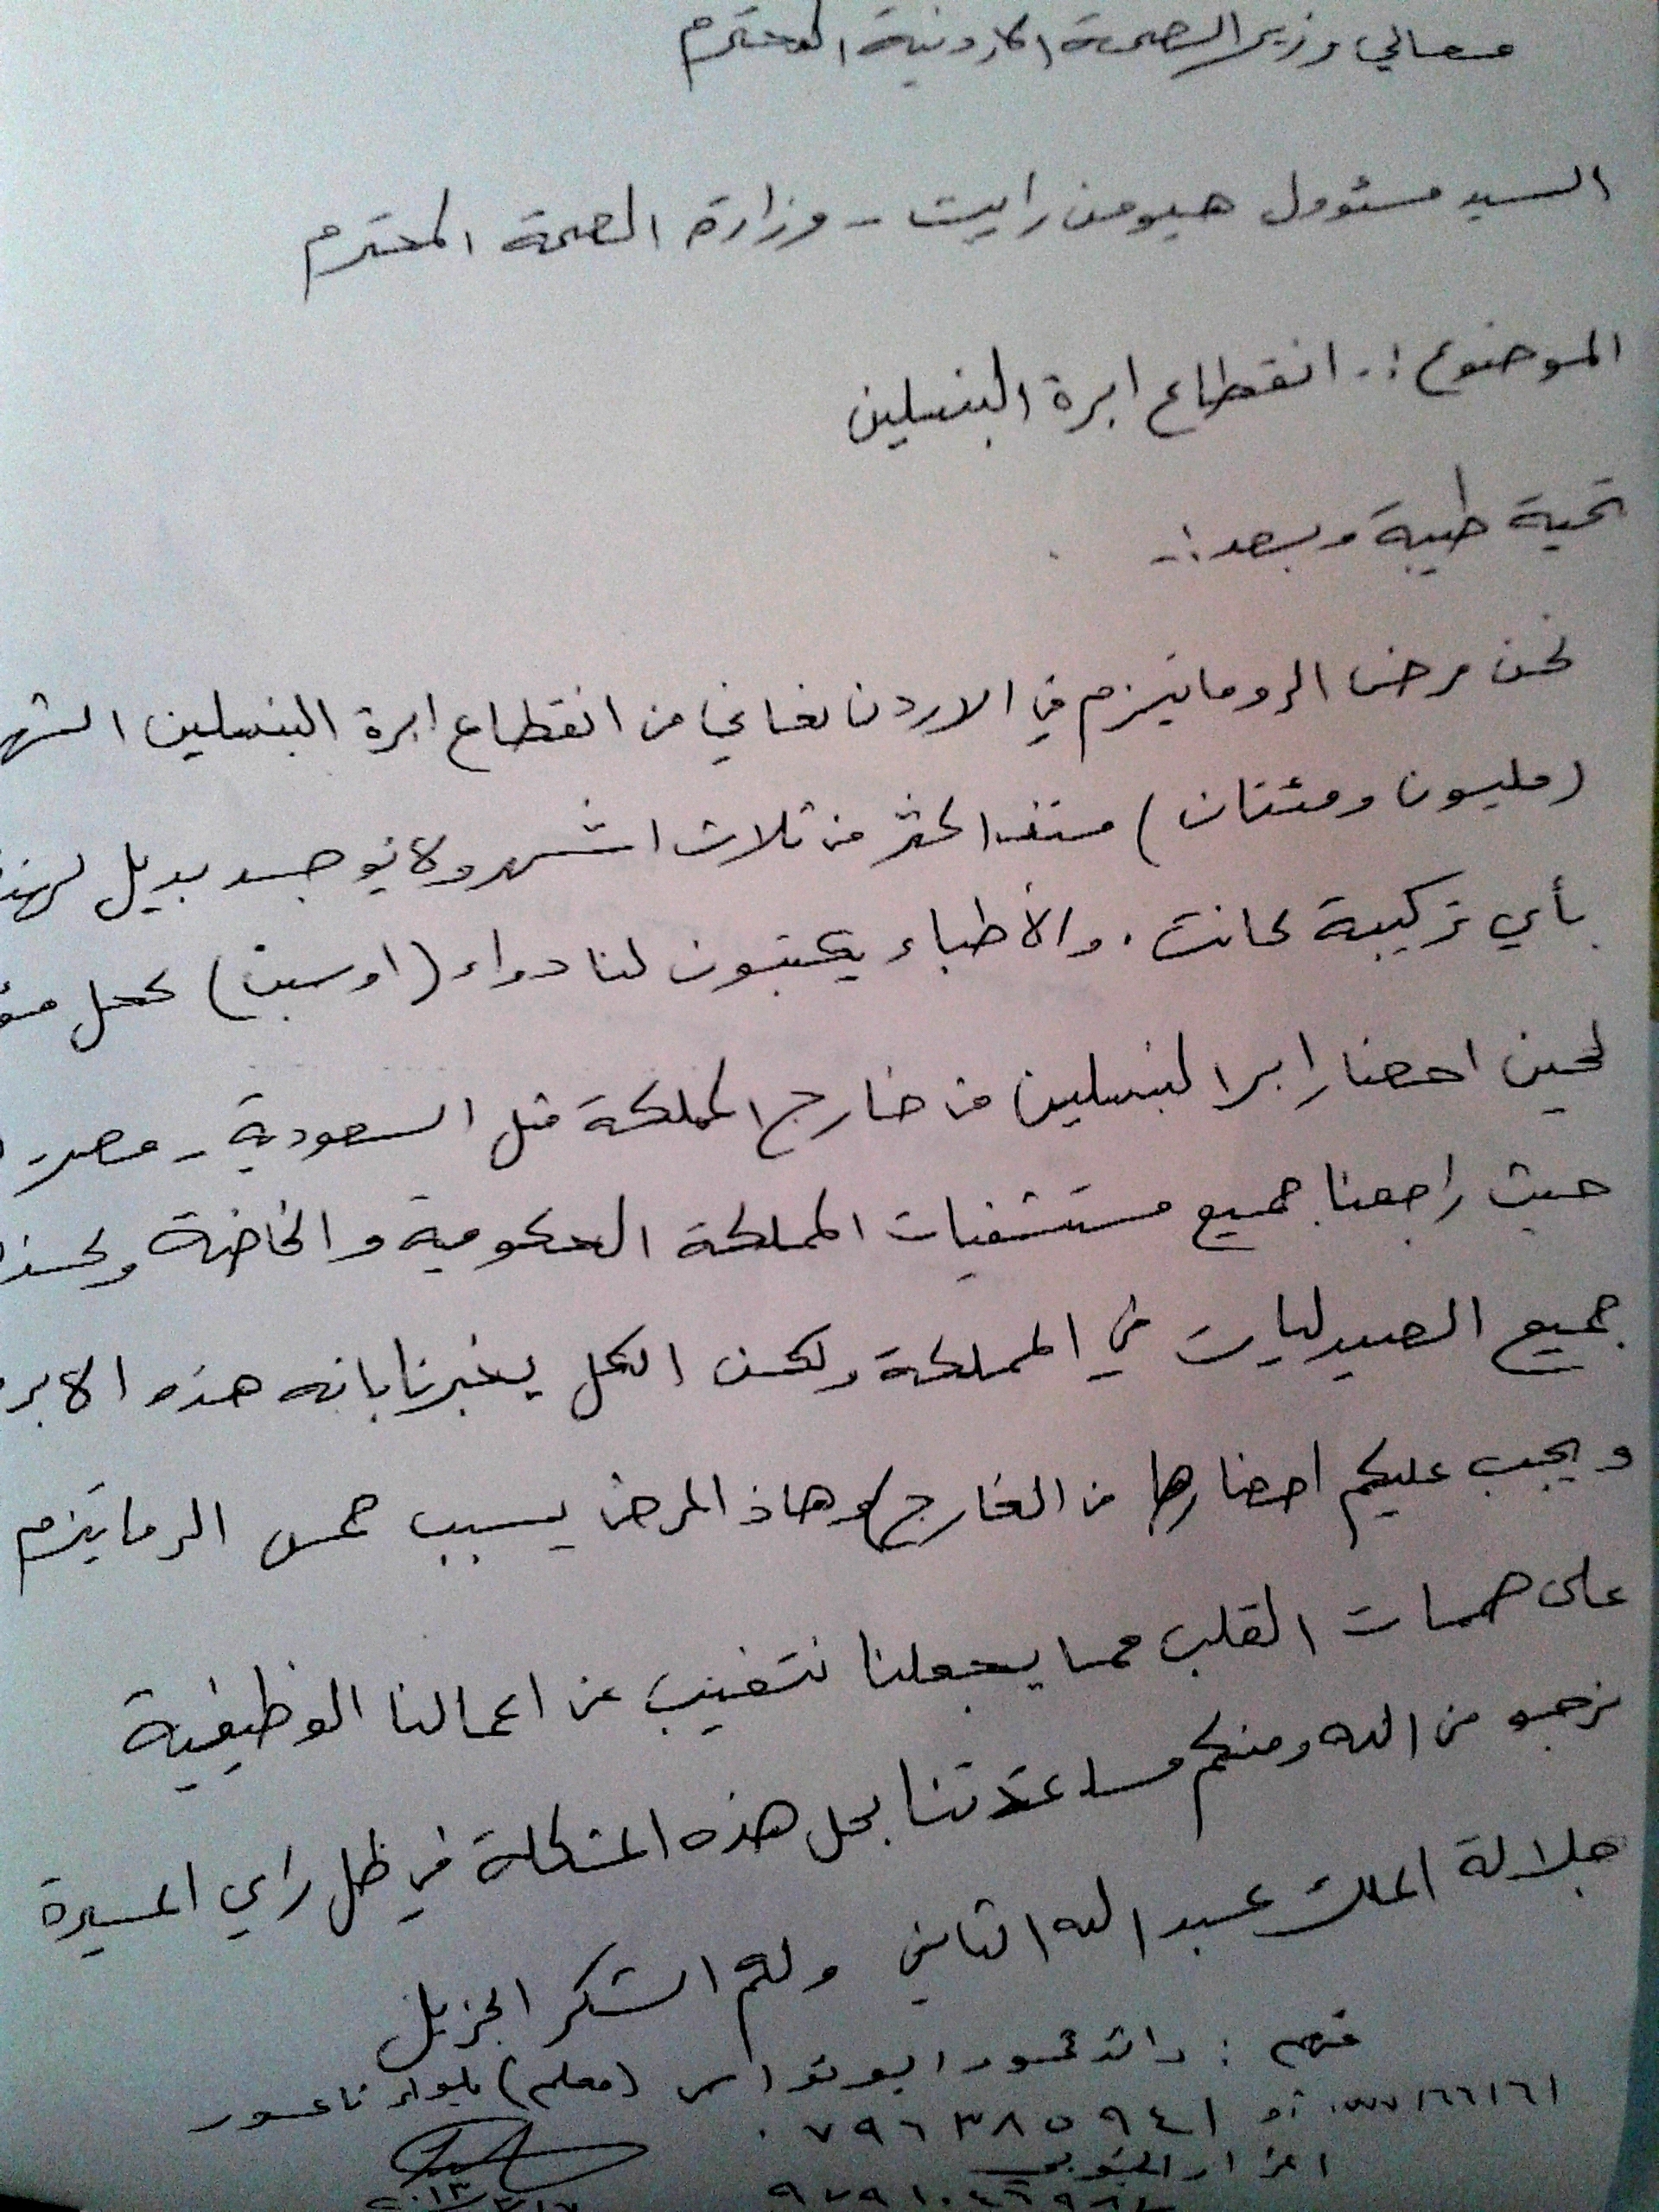 معالي وزير الصحة الاردنية المحترم
السيد مسئوول هيومن رايت - وزارة الصحة المحترم
الموضوع :- انقطاع ابرة البنسلين
تحية طيبة وبعد :-
نحن مرضى الروماتيزم في الاردن نعاني من انقطاع ابرة البنسلين
(مليون ومئتان) منذ اكثر من ثلاث اشهر ولا يوجد بديل
بأي تركيبة كانت . والأطباء يكتبون لنا دواء (اوسبن) كحل
لحين احضار ابر البنسلين من خارج المملكة مثل السعودية - مصر -
حيث راجعنا جميع مستشفيات المملكة الحكومية والخاصة
جميع الصيدليات في المملكة ولكن الكل يخبرنا بانه هذه الابر
ويجب عليكم احضارها من الخارج وهاذ المرض يسبب حمى الرماتيزم
على صمامات القلب مما يجعلنا نتغيب عن اعمالنا الوظيفية
نرجو من الله ومنكم مساعدتنا بحل هذه المشكلة في ظل راعي المسيرة
جلالة الملك عبد الله الثاني ولكم الشكر الجزيل
منهم : رائد محمود ابو نواس (معلم) بلواء ناعور
أو ٠٧٩٦٣٨٥٩٤١